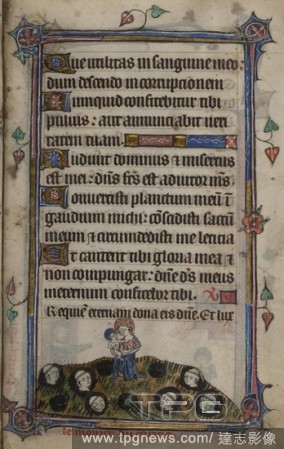 Que utilitas in sanguine meo:
dum descendo in corruptionem
Numquid confitebitur tibi
puluis: aut annunciabit ueri
tatem tuam.
Audiuit dominus et misertus
est mei: dñs fcs est adiutor ms
Conuertisti planctum meu i
gaudium michi: conscidisti saccū
meum et circumdedisti me leticia
Ut cantent tibi gloria mea et
non compungar: dñe ds meus
in eternum confitebor tibi.
Requiē eternam dona eis dñe. Et lux
TPG
www.tpgnews.com/ 達志影像